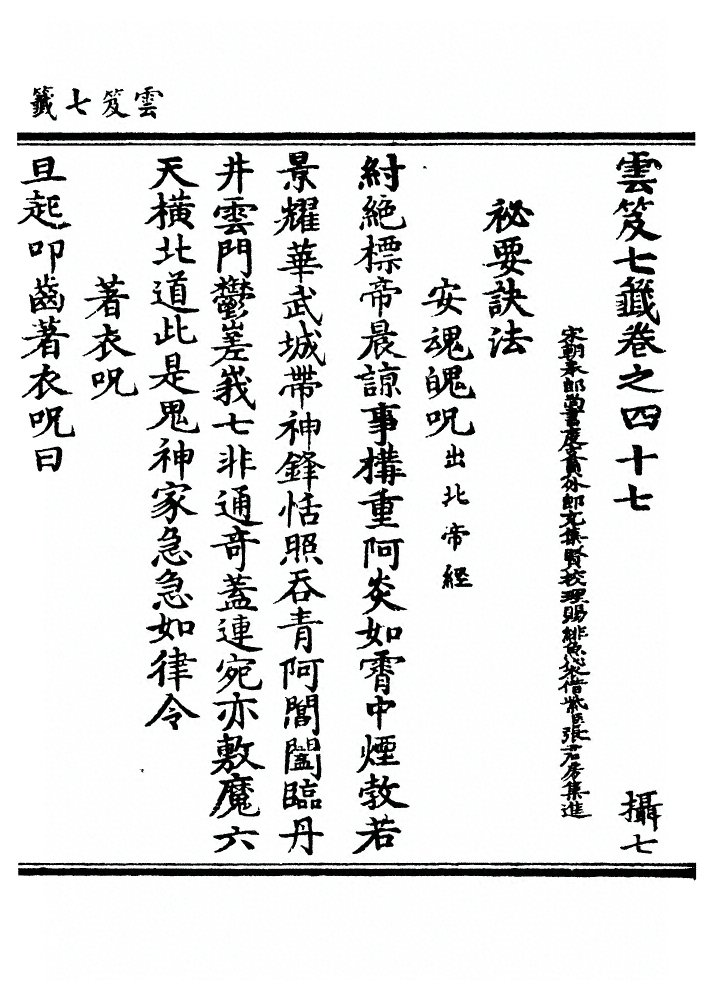 雲笈七籤
雲笈七籤卷之四十七 攝七
宋朝奉郎尚書度支員外郎充集賢校理賜緋魚袋借紫臣張君房集進
祕要訣法
安魂魄呪 出北帝經
紂絶標帝晨諒事構重阿炎如霄中煙敦若
景耀華武城帶神鋒恬照吞青阿閶闔臨丹
井雲門鬱嵳峩七非通奇蓋連宛亦敷魔六
天橫北道此是鬼神家急急如律令
著衣呪
旦起叩齒著衣呪曰